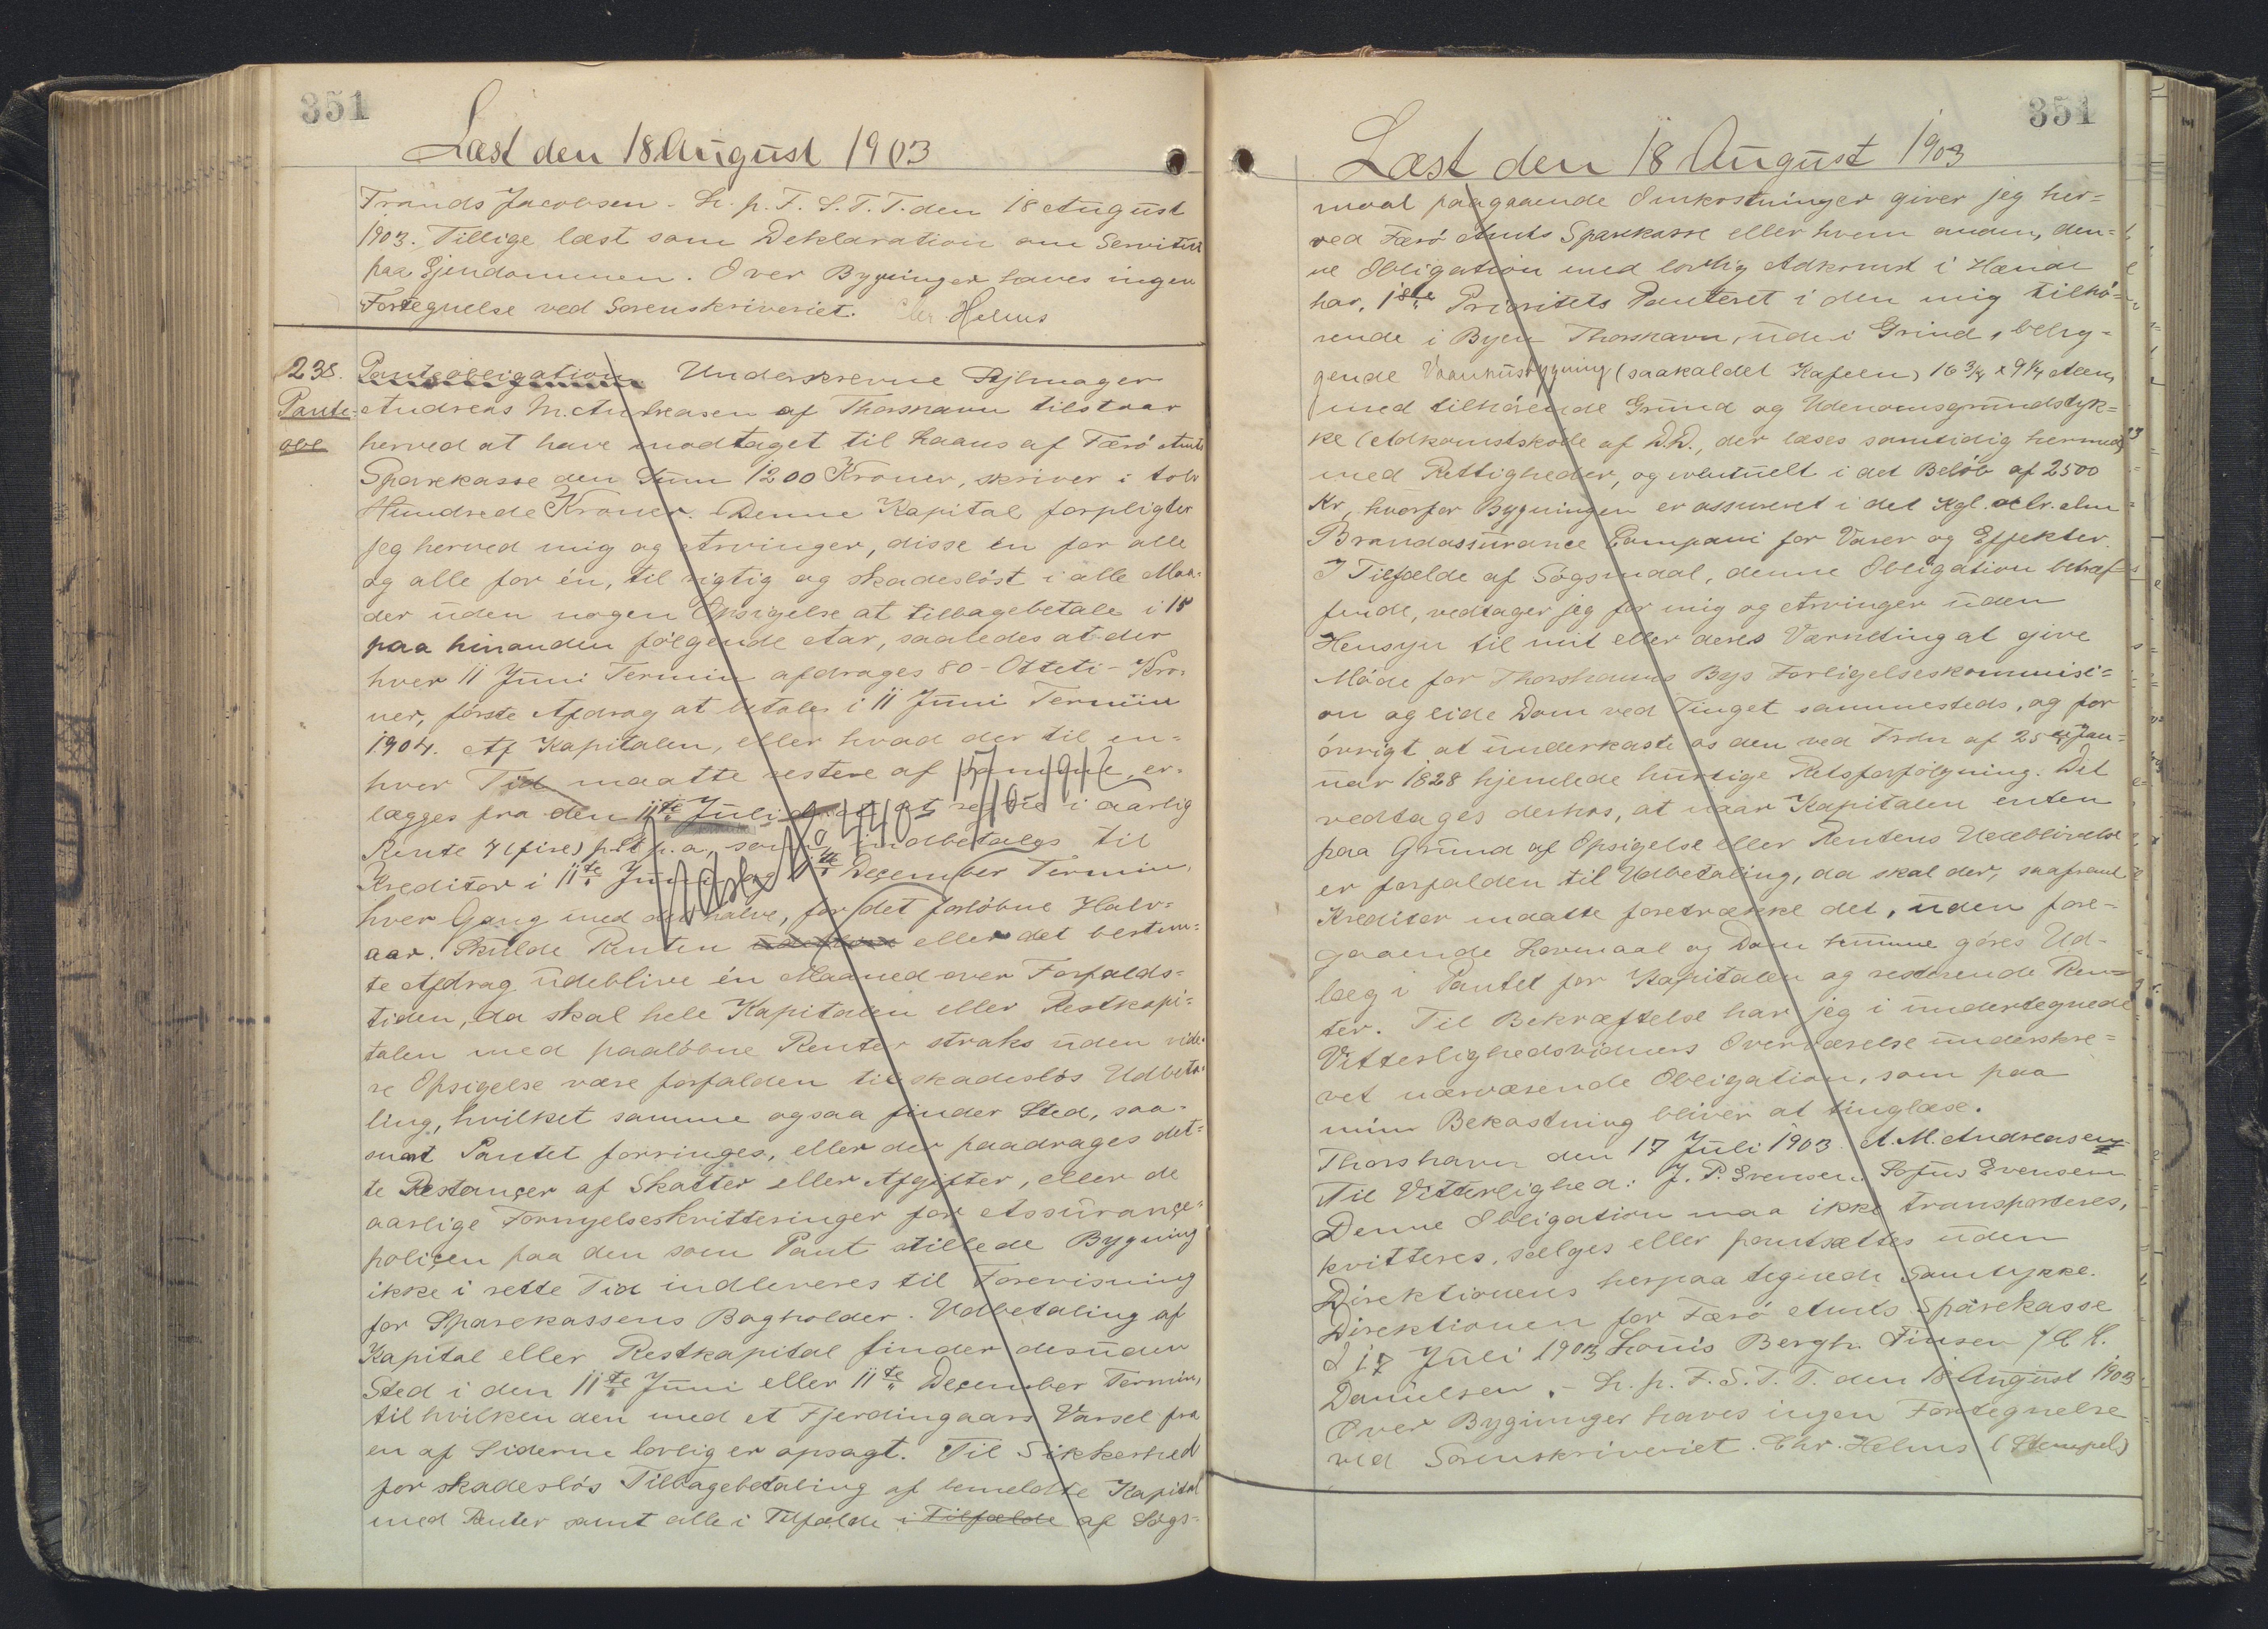 351
Læst den 18 August 1903
Frands Jacobsen - L. p. F. S. T. T. den 18 August
1903. Tillige læst som Deklaration om Servitut
paa Ejendommen. Over Bygninger haves ingen
Fortegnelse ved Sorenskriveriet. Chr. Helms
238. Panteobligation Underskrevne
Pante- Andreas M. Andreasen af Thorshavn tilstaar
obl herved at have modtaget til Laans af Færö Amts
Sparekasse den Sum 1200 Kroner, skriver i tolv
Hundrede Kroner. Denne Kapital forpligter
jeg herved mig og Arvinger, disse én for alle
og alle for én, til rigtig og skadeslöst i alle Maa-
der uden nogen Opsigelse at tilbagebetale i 15
paa hinanden fölgende Aar, saaledes at der
hver 11 Juni Termin afdrages 80 - Otteti - Kro-
ner, förste Afdrag at betales i 11 Juni Termin
1904. Af Kapitalen, eller hvad der til en-
hver Tid maatte restere af samme, er-
lægges fra den 11te Juli at regne i aarlig
Rente 4 (fire) pCt p. a., som indbetales til
Kreditor i 11te Juni og 11te December Termin,
hver Gang med det halve, for det forlöbne Halv-
aar. Skulde Renten udeblive eller det bestem-
te Afdrag udeblive én Maaned over Forfalds-
tiden, da skal hele Kapitalen eller Restkapi-
talen med paalöbne Renter straks uden vide-
re Opsigelse være forfalden til skadeslös Udbeta-
ling, hvilket samme ogsaa finder Sted, saa-
snart Pantet forringes, eller der paadrages det-
te Restancer af Skatter eller Afgifter, eller de
aarlige Fornyelseskvitteringer for Assurance-
policen paa den som Pant stillede Bygning
ikke i rette Tid indleveres til Forevisning
for Sparekassens Bogholder. Udbetaling af
Kapital eller Restkapital finder desuden
Sted i den 11te Juni eller 11te December Termin,
til hvilken den med et Fjerdingaars Varsel fra
en af Siderne lovlig er opsagt. Til Sikkerhed
for skadeslös Tilbagebetaling af bemeldte Kapital
med Renter samt alle i Tilfælde i Tilfælde af Sögs-
351
Læst den 18 August 1903
maal paagaaende Omkostninger giver jeg her-
ved Færö Amts Sparekasse eller hvem anden, den-
ne Obligation med lovlig Adkomst i Hænde
har, 1ste Prioritets Panteret i den mig tilhö-
rende i Byen Thorshavn, ude i Grind, belig-
gende Vaanhusbygning (saakaldet Kafeen) 16 3/4 x 9 1/4 Alen,
med tilhörende Grund og Udenomsgrundstyk-
ke (Adkomstsköde af D. D., der læses samtidig hermed)
med Rettigheder, og eventuelt i det Belöb af 2500
Kr, hvorfor Bygningen er assureret i det Kgl. octr. alm
Brandassurance Compani for Varer og Effekter.
I Tilfælde af Sögsmaal, denne Obligation betræf-
fende, vedtager jeg for mig og Arvinger uden
Hensyn til mit eller deres Værneting at give
Möde for Thorshavns Bys Forligelseskommisi-
on og lide Dom ved Tinget sammesteds, og for
övrigt at underkaste os den ved Frdn af 25de Jan-
uar 1828 hjemlede hurtige Retsforfölgning. Det
vedtages derhos, at naar Kapitalen enten
paa Grund af Opsigelse eller Rentens Udeblivelse
er forfalden til Udbetaling, da skal der, saafremt
Kreditor maatte foretrække det, uden fore-
gaaende Lovmaal og Dom kunne göres Ud-
læg i Pantet for Kapitalen og resterende Ren-
ter. Til Bekræftelse har jeg i undertegnede
Vitterlighedsvidners Overværelse underskre-
vet nærværende Obligation, som paa
min Bekostning bliver at tinglæse.
Thorshavn den 17 Juli 1903. A. M. Andreasen
Til Vitterlighed: J. P. Evensen. Sofus Evensen
Denne Obligation maa ikke transporteres,
kvitteres, sælges eller pantsættes uden
Direktionens herpaa tegnede Samtykke.
Direktionen for Færö Amts Sparekasse
d 17 Juli 1903 Louis Bergh. Finsen
Danielsen. - L. p. F. S. T. T. den 18 August 1903
Over Bygninger haves ingen Fortegnelse
ved Sorenskriveriet. Chr. Helms (Stempel)